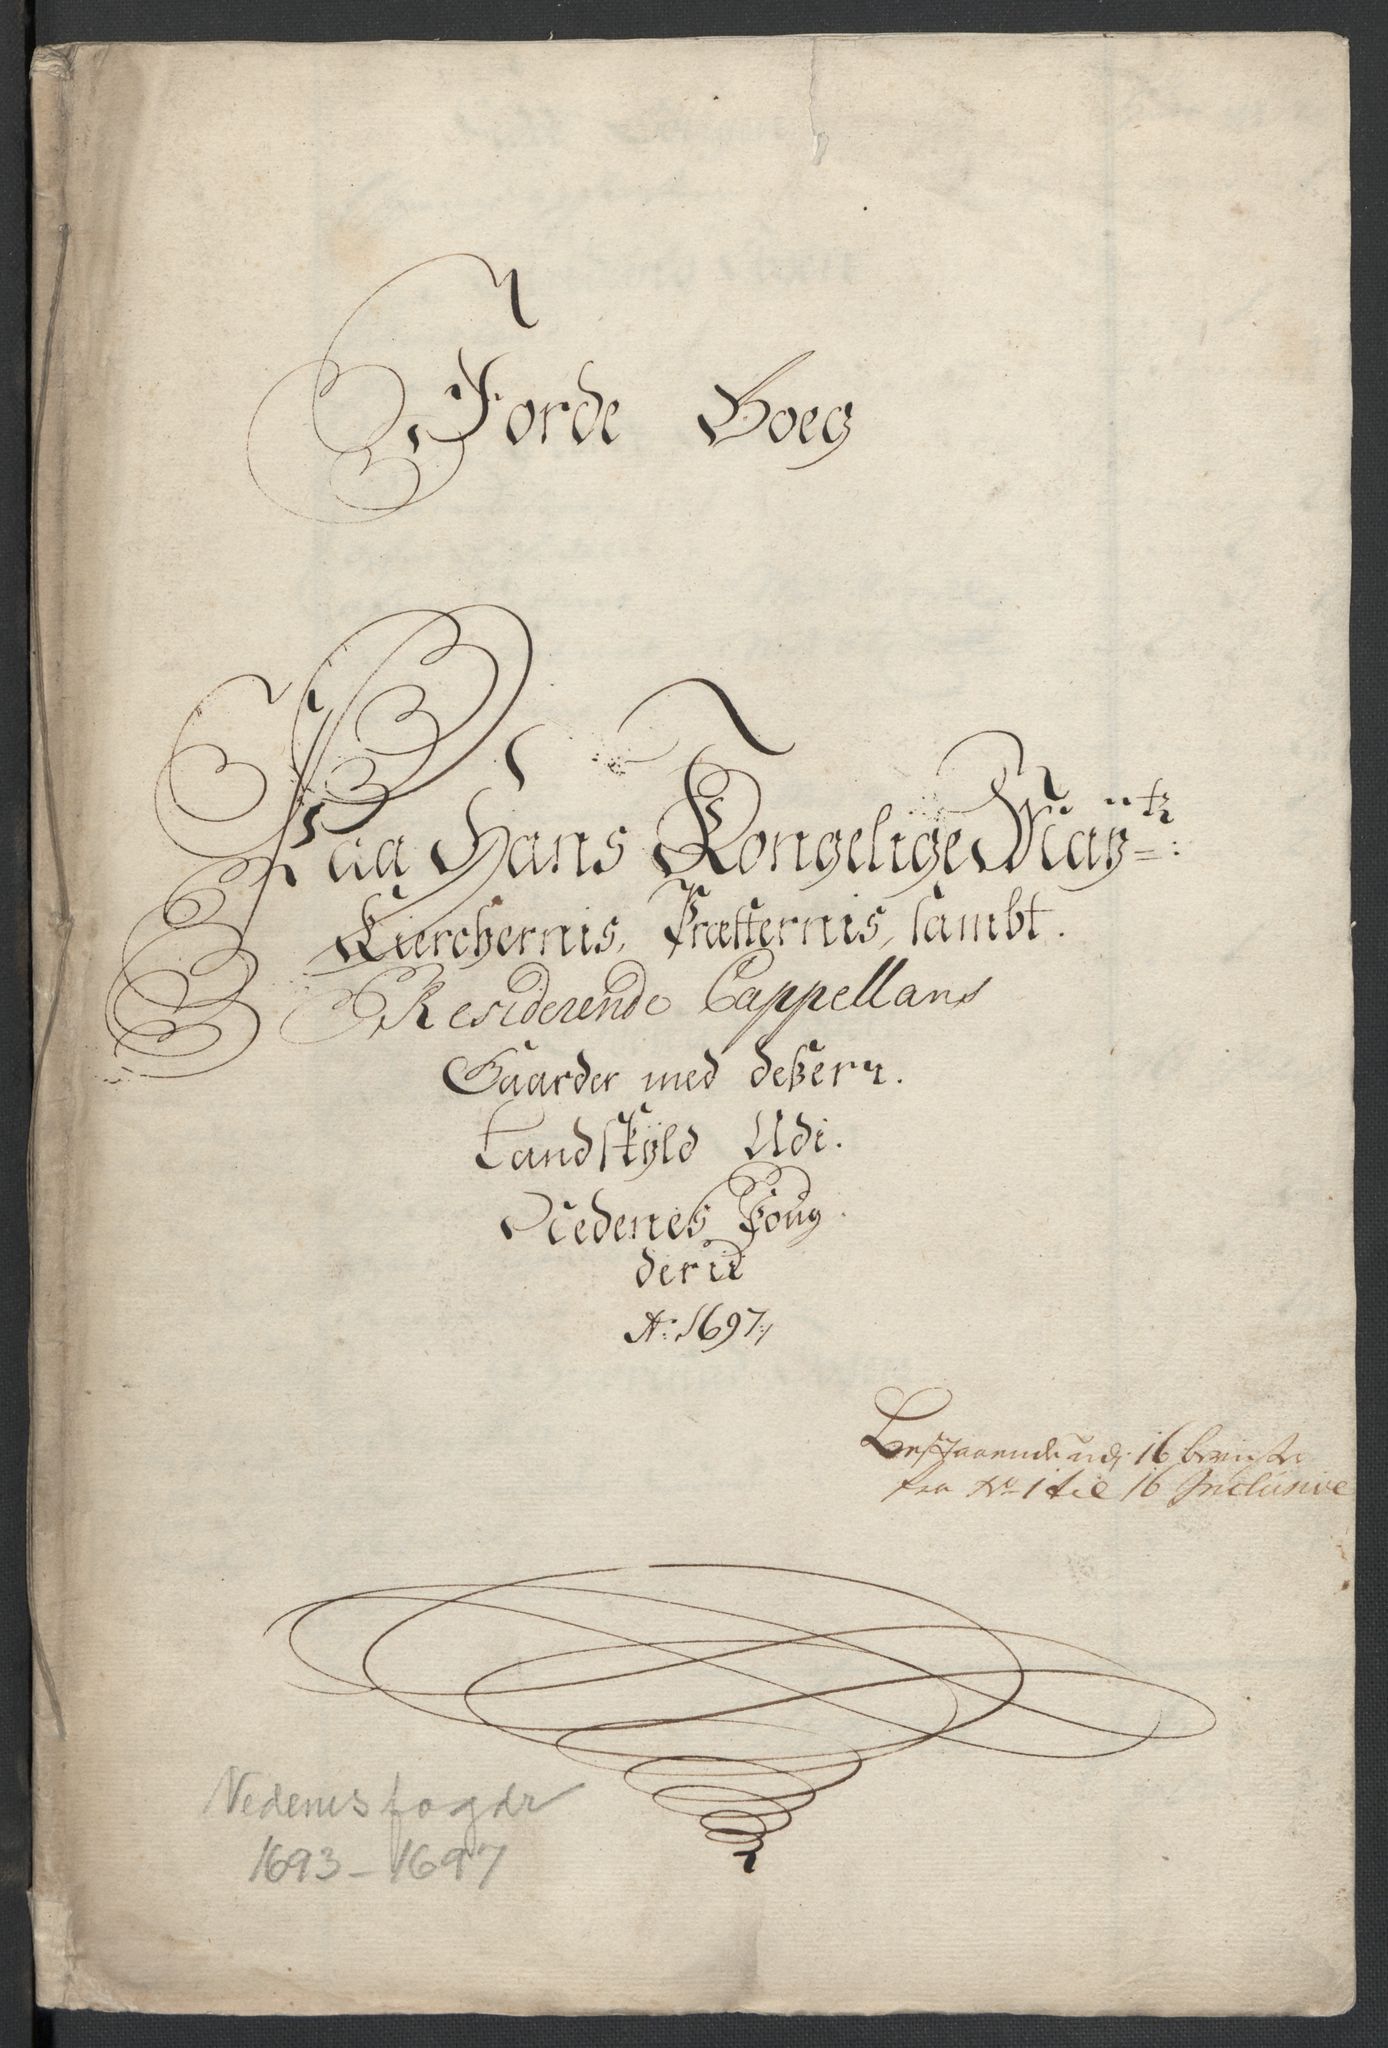 Jorde Boeg
Paa Hans Kongelige Mayᵗᶻ:
Kierchernis, Præsternis, sambt.
Residerende Cappellans
Gaarder med deßern.
Landskyld Udi.
Nedenes Foug
derii
Aᵒ: 1697,
Bestaaende udi 16 
fra Nᵒ 1 til 16 Inclusive
Nedenes fogdr
1693-1697